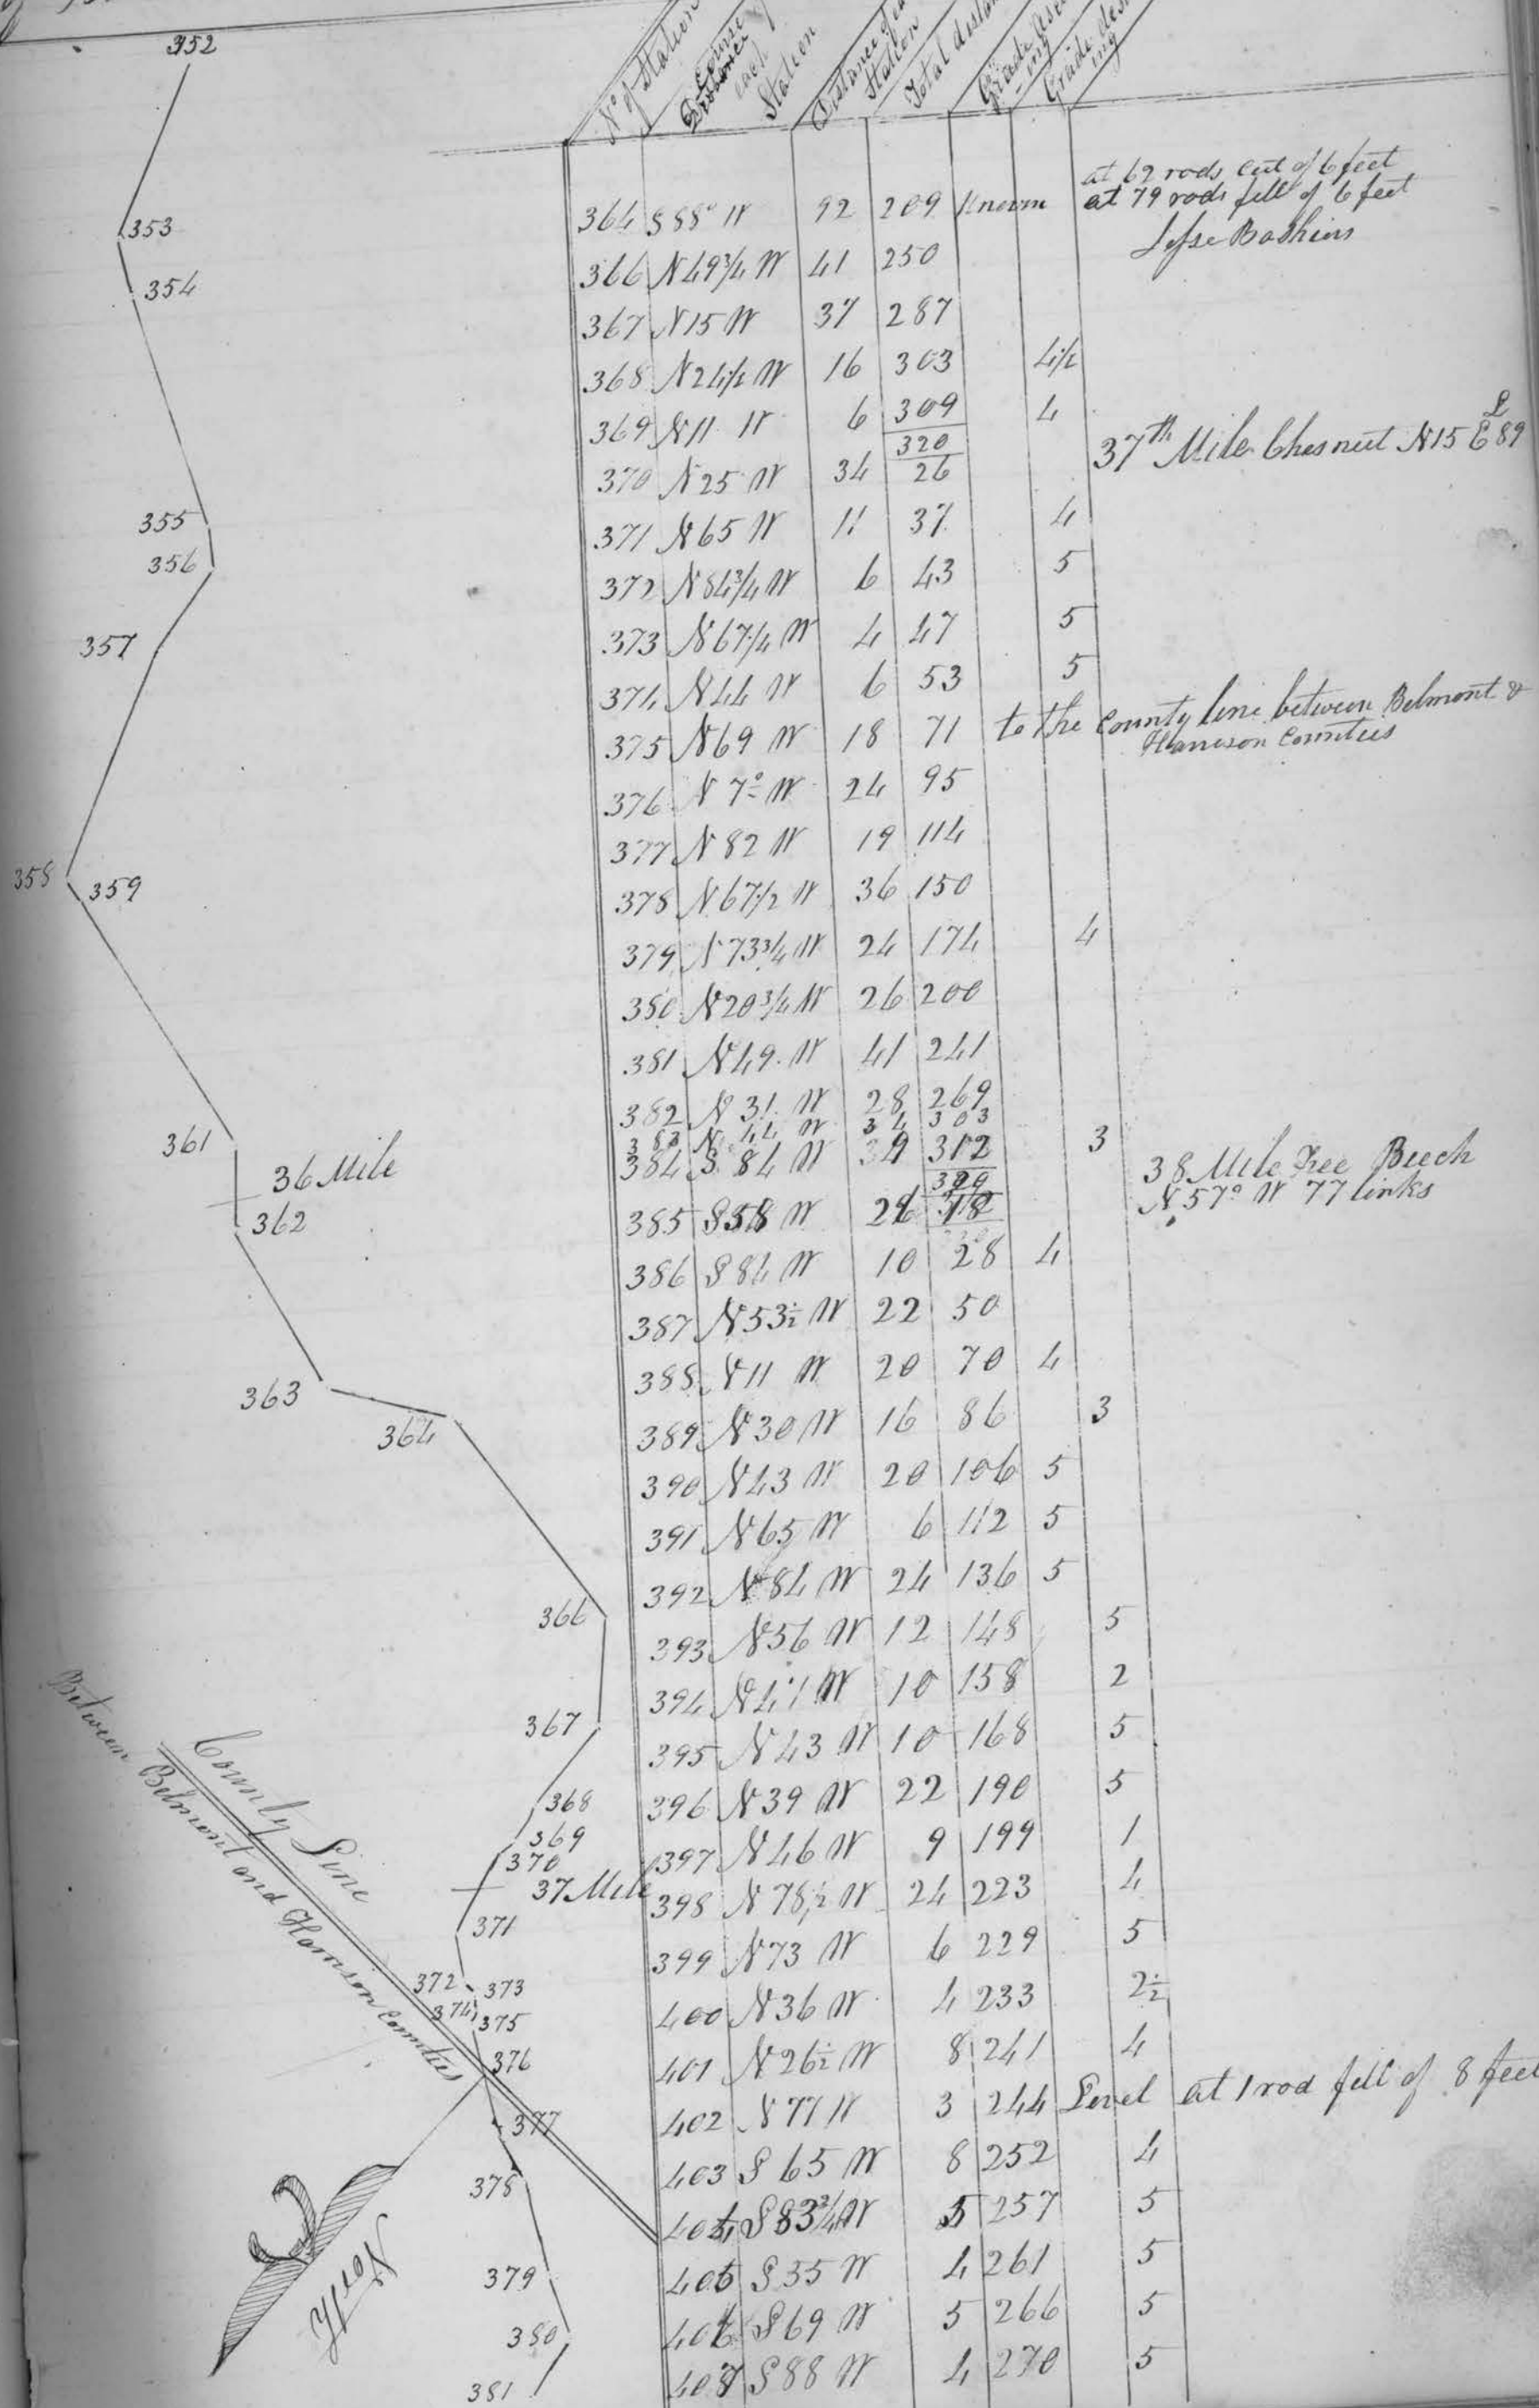 352
353
354
355
356
357
358
359
361
36 Mile
362
363
364
366
367
368
369
370
37 Mile
371
372
373
374
375
376
377
378
379
380
381
County Line
Between Belmont and Harrison Counties
North
No of Station
Course each Station
Distance of
Station
Total
Grade
ing
Grade
ing
364 S 88° W 92 209 Known at 62 rods cut of 6 feet
at 79 rods fill of 6 feet
366 N 49 3/4 W 41 250
367 N 15 W 37 287
368 N 24 1/2 W 16 303 4 1/2
369 N 11 W 6 309 4
320
37th Mile Chesnut N 15 E 89 L
370 N 25 W 34 26
371 N 65 W 11 37 4
372 N 84 3/4 W 6 43 5
373 N 67 1/4 W 4 47 5
374 N 44 W 6 53 5
375 N 69 W 18 71 to the County line between Belmont &
Harrison Counties
376 N 7° W 24 95
377 N 82 W 19 114
378 N 67 1/2 W 36 150
379 N 73 3/4 W 24 174 4
380 N 20 3/4 W 26 200
381 N 49 W 41 241
382 N 31 W 28 269
383 N 44 W 34 303
384 S 84 W 312 3
38 Mile Tree Beech
N 57° W 77 links
385 S 58 W 26 18
386 S 84 W 10 28 4
387 N 53 1/2 W 22 50
388 N 11 W 20 70 4
389 N 30 W 16 86 3
390 N 43 W 20 106 5
391 N 65 W 6 112 5
392 N 84 W 24 136 5
393 N 56 W 12 148 5
394 N 47 W 10 158 2
395 N 43 W 10 168 5
396 N 39 W 22 190 5
397 N 46 W 9 199 1
398 N 78 1/2 W 24 223 4
399 N 73 W 6 229 5
400 N 36 W 4 233 2 1/2
401 N 26 1/2 W 8 241 4
402 N 77 W 3 244 Level at 1 rod fill of 8 feet
403 S 65 W 8 252 4
404 S 83 3/4 W 5 257 5
405 S 35 W 4 261 5
406 S 69 W 5 266 5
407 S 88 W 4 270 5